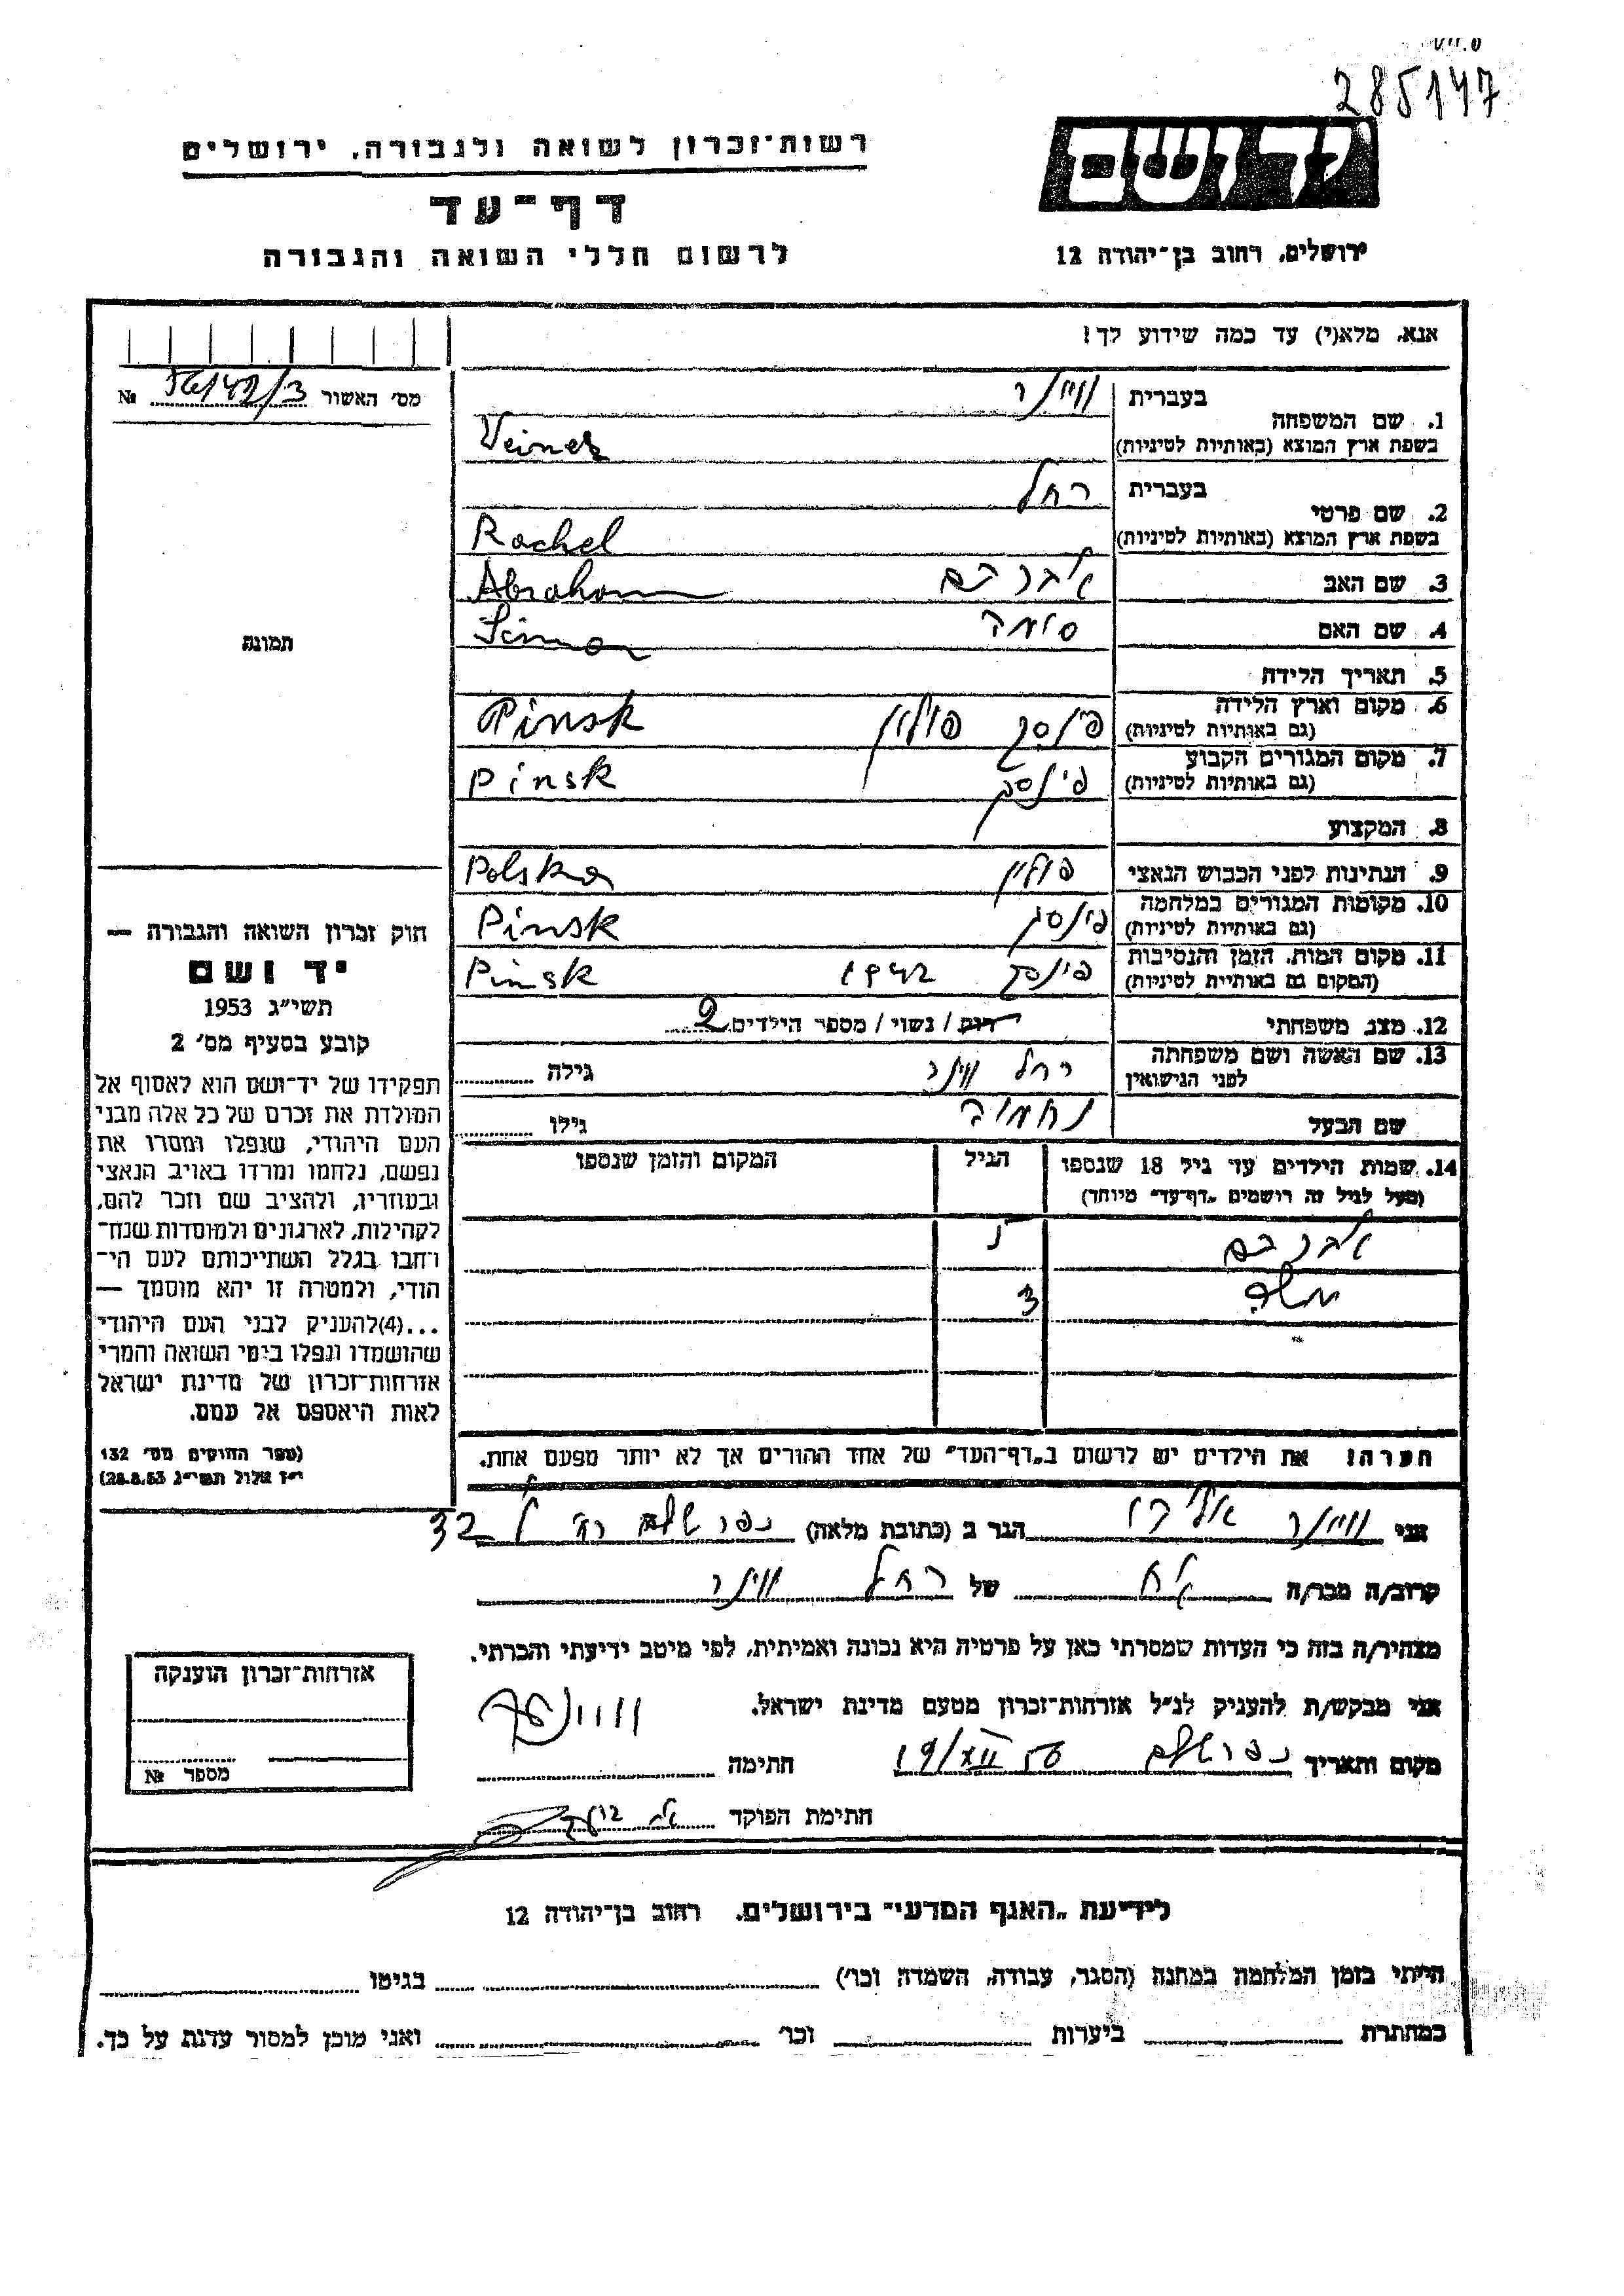 285147
יד ושם
ירושלים, רחוב בן־יהודה 12
רשות־זכרון לשואה ולגבורה, ירושלים
דף־עד
לרשום חללי השואה והגבורה
אנא, מלא(י) עד כמה שידוע לך!
1. שם המשפחה
בעברית וויינר
בשפת ארץ המוצא (באותיות לטיניות) Veiner
2. שם פרטי
בעברית רחל
בשפת ארץ המוצא (באותיות לטיניות) Rachel
3. שם האב אברהם Abraham
4. שם האם סימה Sima
5. תאריך הלידה
6. מקום וארץ הלידה
(גם באותיות לטיניות) פינסק פולין Pinsk
7. מקום המגורים הקבוע
(גם באותיות לטיניות) פינסק Pinsk
8. המקצוע
9. הנתינות לפני הכבוש הנאצי פולין Polska
10. מקומות המגורים במלחמה
(גם באותיות לטיניות) פינסק Pinsk
11. מקום המות, הזמן והנסיבות
(המקום גם באותיית לטיניות) פינסק 1942 Pinsk
12. מצב משפחתי רווק / נשוי / מספר הילדים 2
13. שם האשה ושם משפחתה
לפני הנישואין רחל וינר גילה
שם הבעל נחמיה גילו
14. שמות הילדים עד גיל 18 שנספו הגיל המקום והזמן שנספו
(מעל לגיל זה רושמים "דף־עד" מיוחד)
אברהם 5
משה 3
הערה! את הילדים יש לרשום ב"דף־העד" של אחד ההורים אך לא יותר מפעם אחת.
אני וויינר אהרן הגר ב (כתובת מלאה) 32
קרוב/ה מכר/ה אח של רחל וינר
מצהיר/ה בזה כי העדות שמסרתי כאן על פרטיה היא נכונה ואמיתית, לפי מיטב ידיעתי והכרתי.
אני מבקש/ת להעניק לנ"ל אזרחות־זכרון מטעם מדינת ישראל.
מקום ותאריך 19/XII 56 חתימה
חתימת הפוקד
מס' האשור № 56142/3
תמונה
חוק זכרון השואה והגבורה —
יד ושם
תשי"ג 1953
קובע בסעיף מס' 2
תפקידו של יד־ושם הוא לאסוף אל
המולדת את זכרם של כל אלה מבני
העם היהודי, שנפלו ומסרו את
נפשם, נלחמו ומרדו באויב הנאצי
ובעוזריו, ולהציב שם וזכר להם,
לקהילות, לארגונים ולמוסדות שנח־
רחבו בגלל השתייכותם לעם הי־
הודי, ולמטרה זו יהא מוסמך —
...(4)להעניק לבני העם היהודי
שהושמדו ונפלו בימי השואה והמרי
אזרחות־זכרון של מדינת ישראל
לאות היאספם אל עמם.
(ספר החוקים מס' 132
י"ז אלול תשי"ג 28.8.53)
אזרחות־זכרון הוענקה
מספר №
לידיעת "האגף המדעי" בירושלים, רחוב בן־יהודה 12
הייתי בזמן המלחמה במחנה (הסגר, עבודה, השמדה וכו') בגיטו
במחתרת ביערות וכו' ואני מוכן למסור עדות על כך.